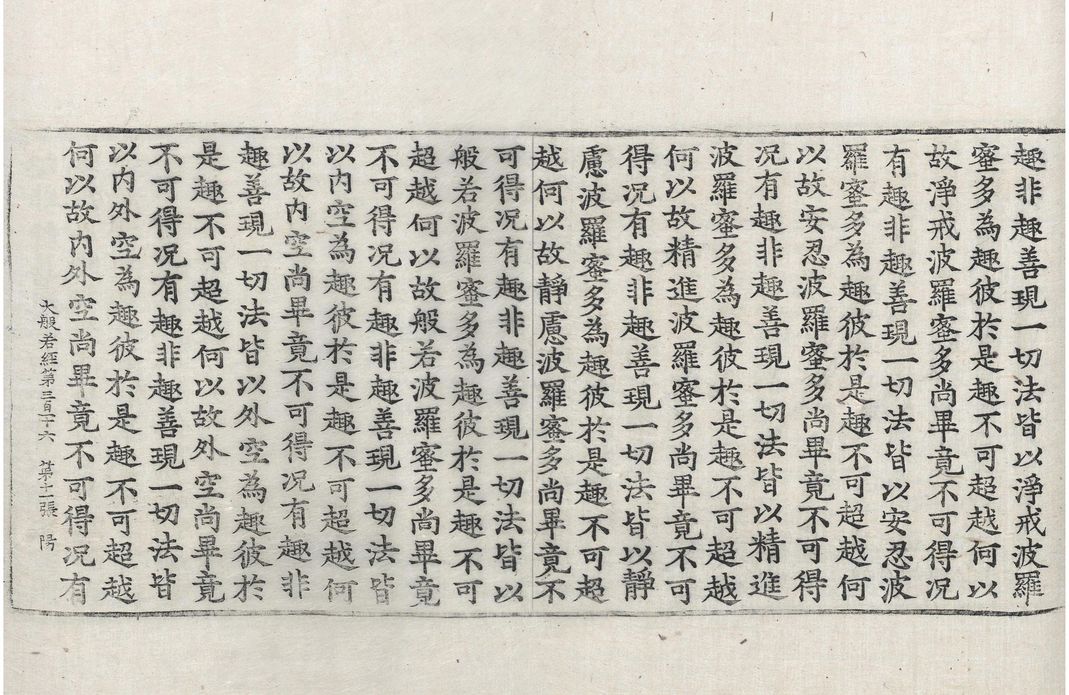 趣非趣善現一切法皆以淨戒波羅
蜜多為趣彼於是趣不可超越何以
故淨戒波羅蜜多尚畢竟不可得况
有趣非趣善現一切法皆以安忍波
羅蜜多為趣彼於是趣不可超越何
以故安忍波羅蜜多尚畢竟不可得
况有趣非趣善現一切法皆以精進
波羅蜜多為趣彼於是趣不可超越
何以故精進波羅蜜多尚畢竟不可
得况有趣非趣善現一切法皆以靜
慮波羅蜜多為趣彼於是趣不可超
越何以故靜慮波羅蜜多尚畢竟不
可得况有趣非趣善現一切法皆以
般若波羅蜜多為趣彼於是趣不可
超越何以故般若波羅蜜多尚畢竟
不可得况有趣非趣善現一切法皆
以內空為趣彼於是趣不可超越何
以故內空尚畢竟不可得况有趣非
趣善現一切法皆以外空為趣彼於
是趣不可超越何以故外空尚畢竟
不可得况有趣非趣善現一切法皆
以內外空為趣彼於是趣不可超越
何以故內外空尚畢竟不可得况有
大般若經第三百十六 第張 陽